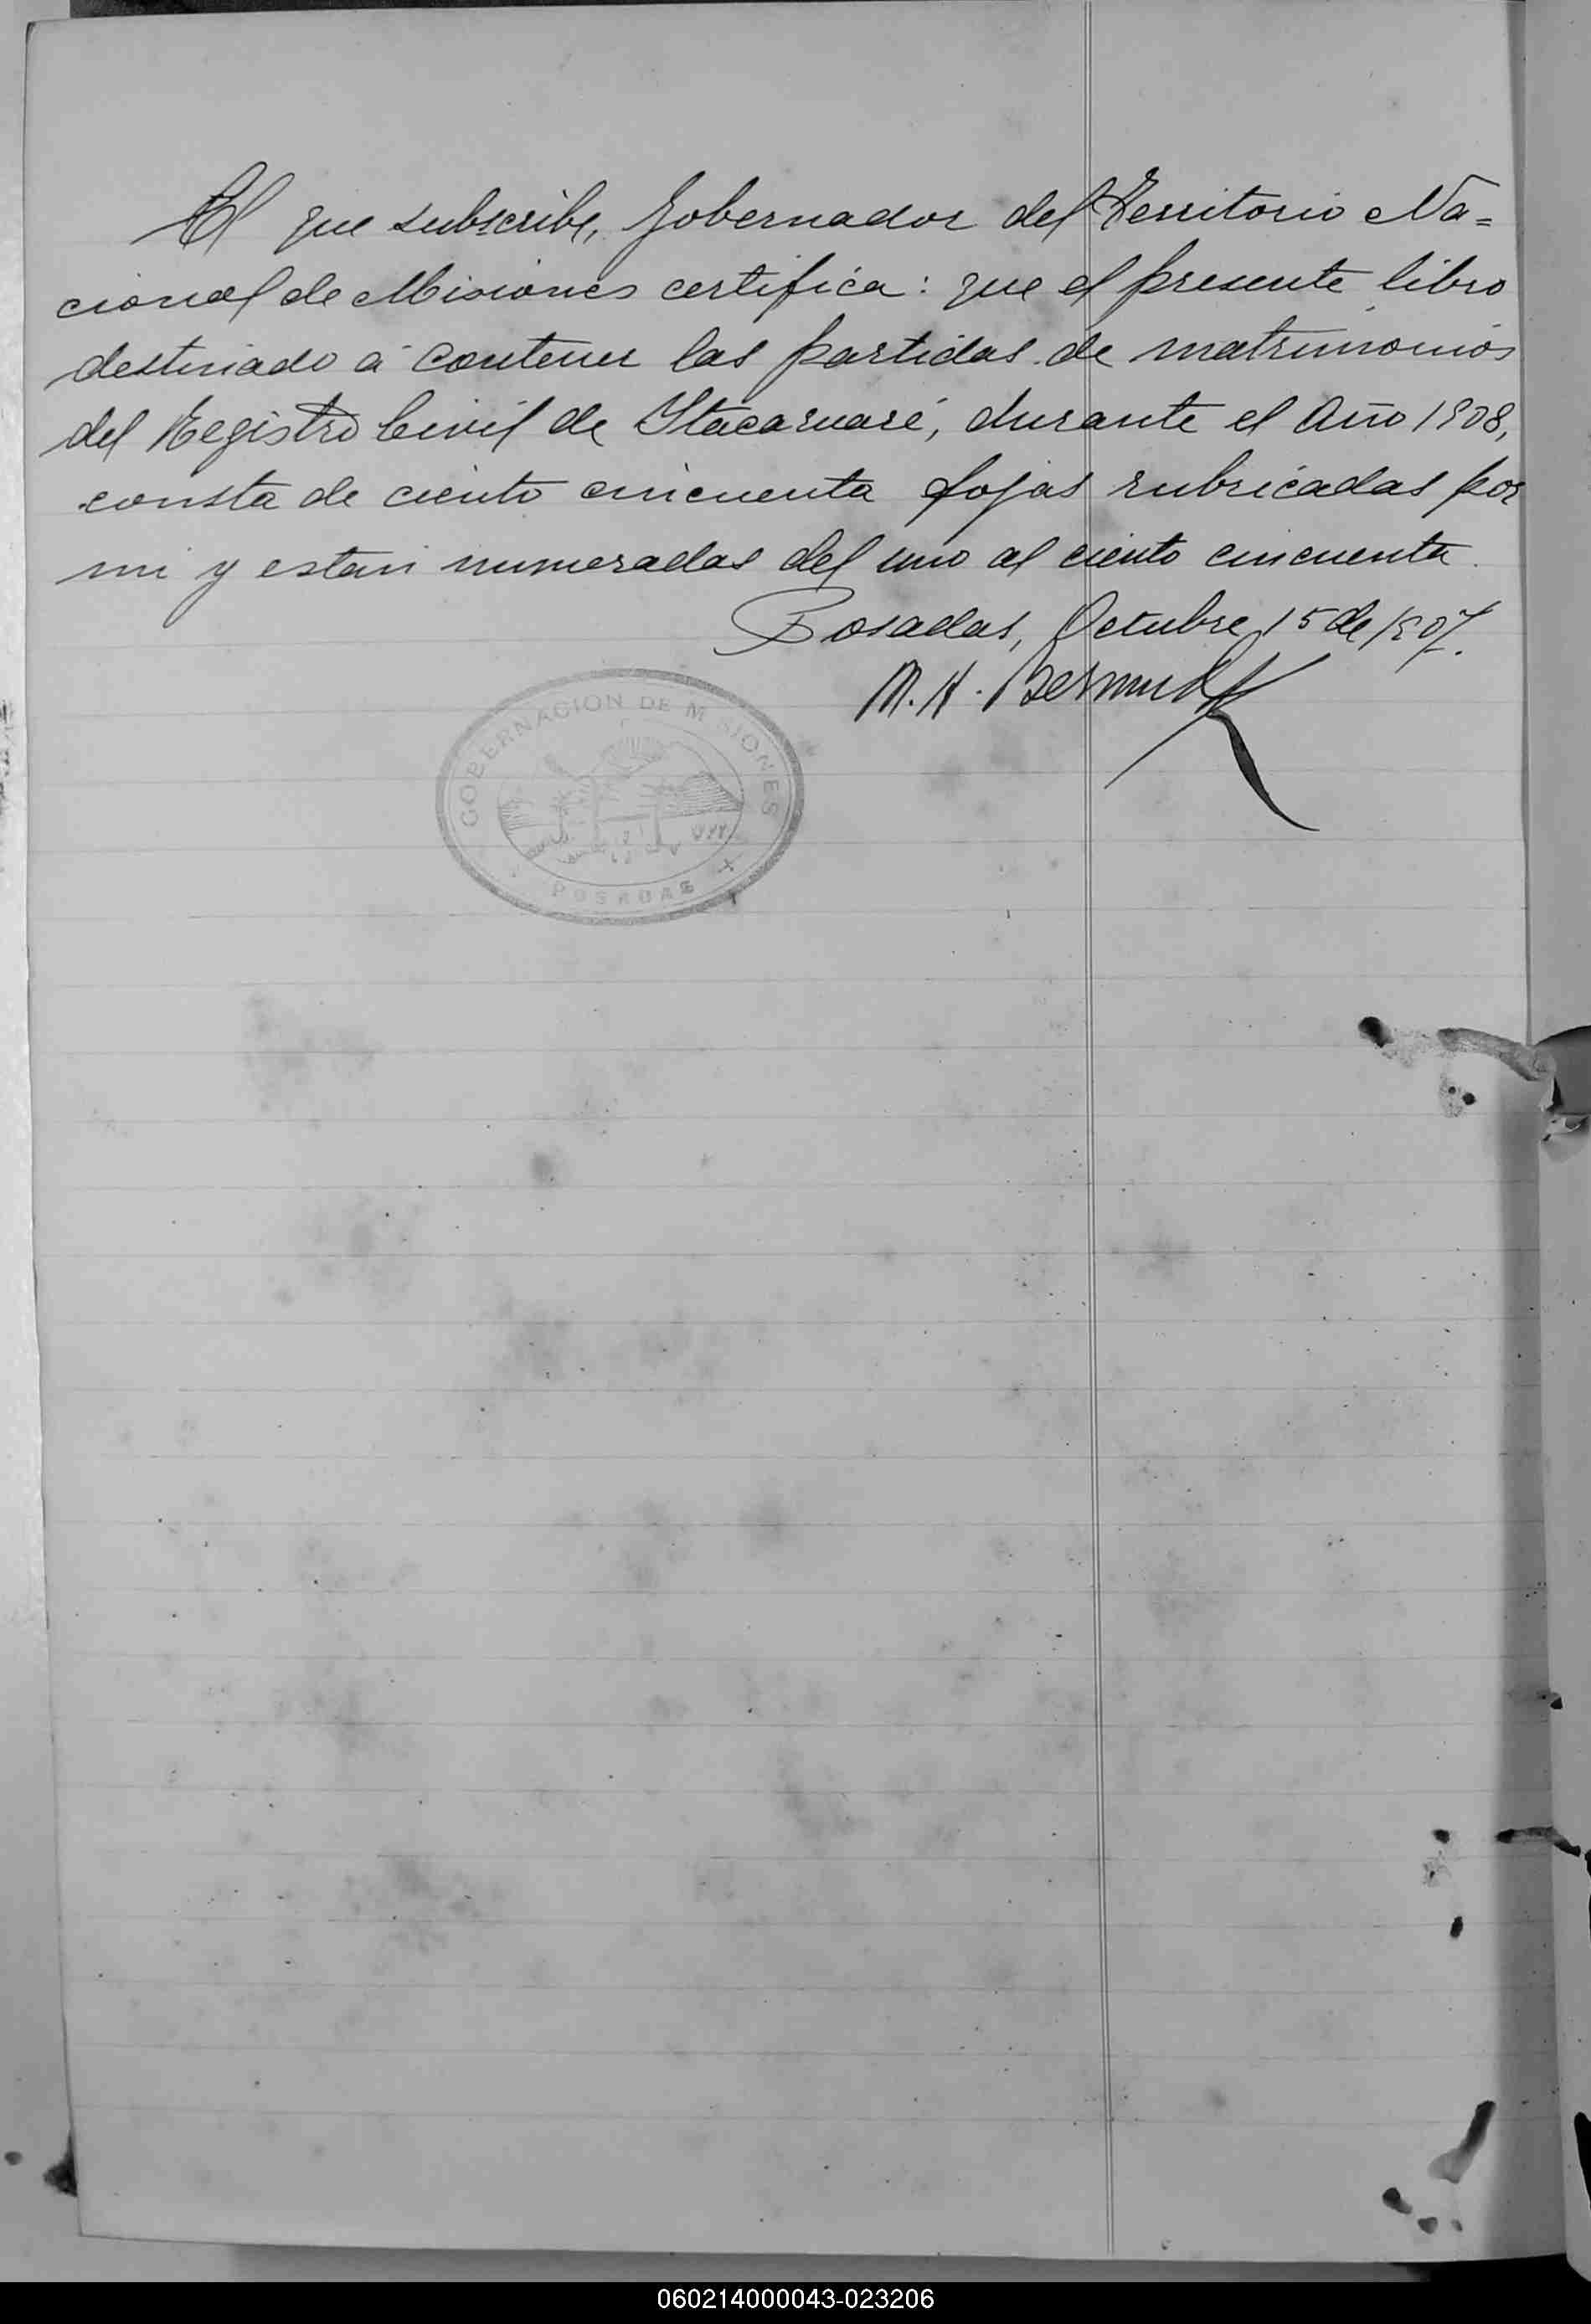 El que subscribe, Gobernador del Territorio Na=
cional de Misiones certifica: que el presente libro
destinado á contener las partidas de matrimonios
del Registro Civil de Itacaruaré, durante el Año 1908,
consta de ciento cincuenta fojas rubricadas por
mi y estan numeradas del uno al ciento cincuenta.
Posadas, Octubre 15 de 1907.
M. H. Bermudez
GOBERNACION DE MISIONES
POSADAS
060214000043-023206